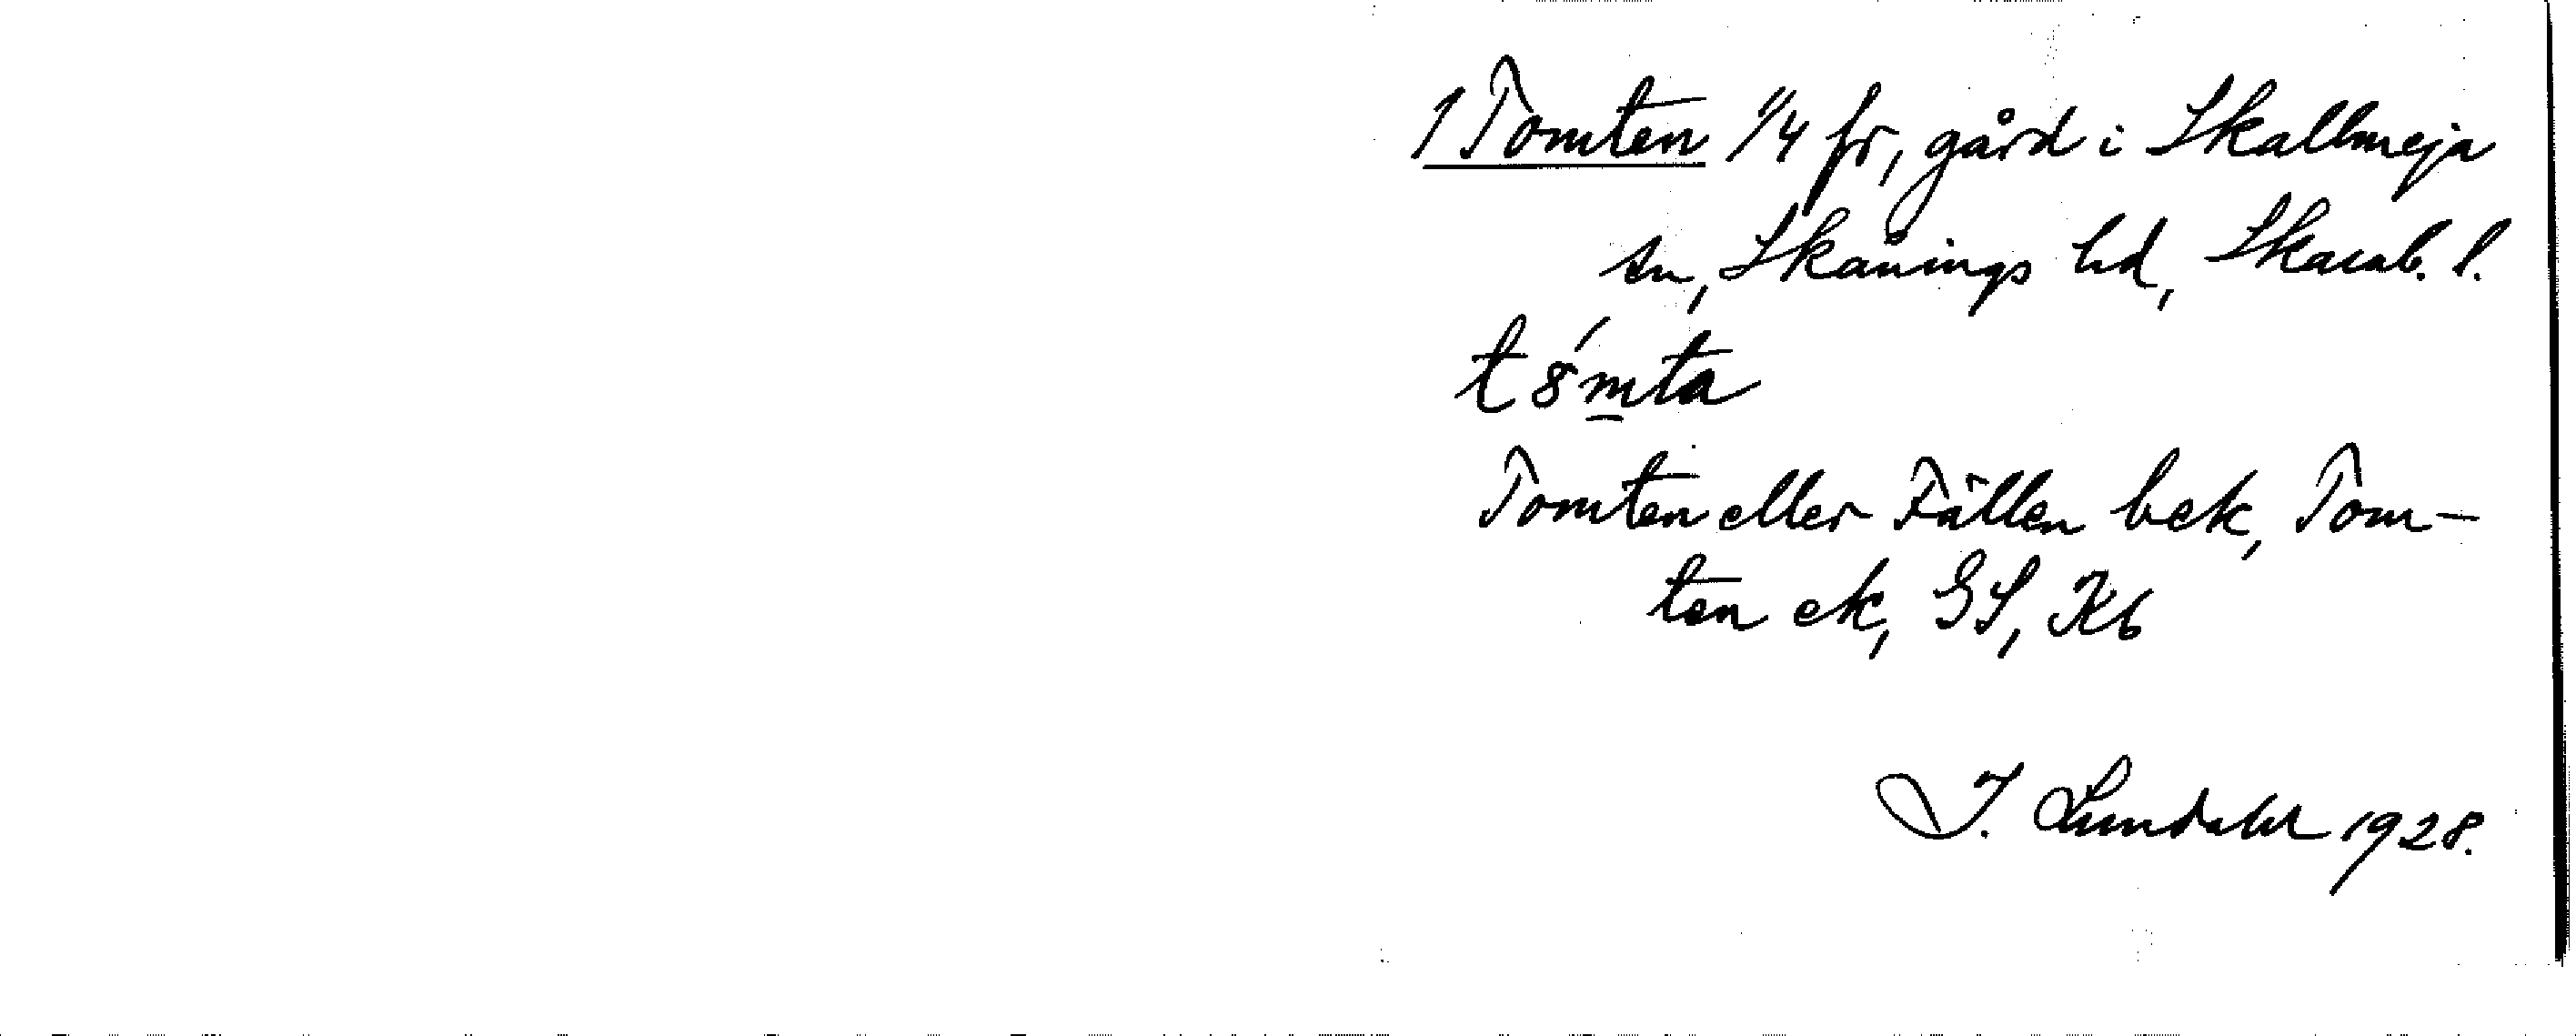 1 Tomten 1/4 fr, gård i Skallmeja
sn, Skånings hd, Skarab. l.
Tomten eller Fällen bek, Tom-
ten ek, GS, Kb
I. Lundahl 1928.